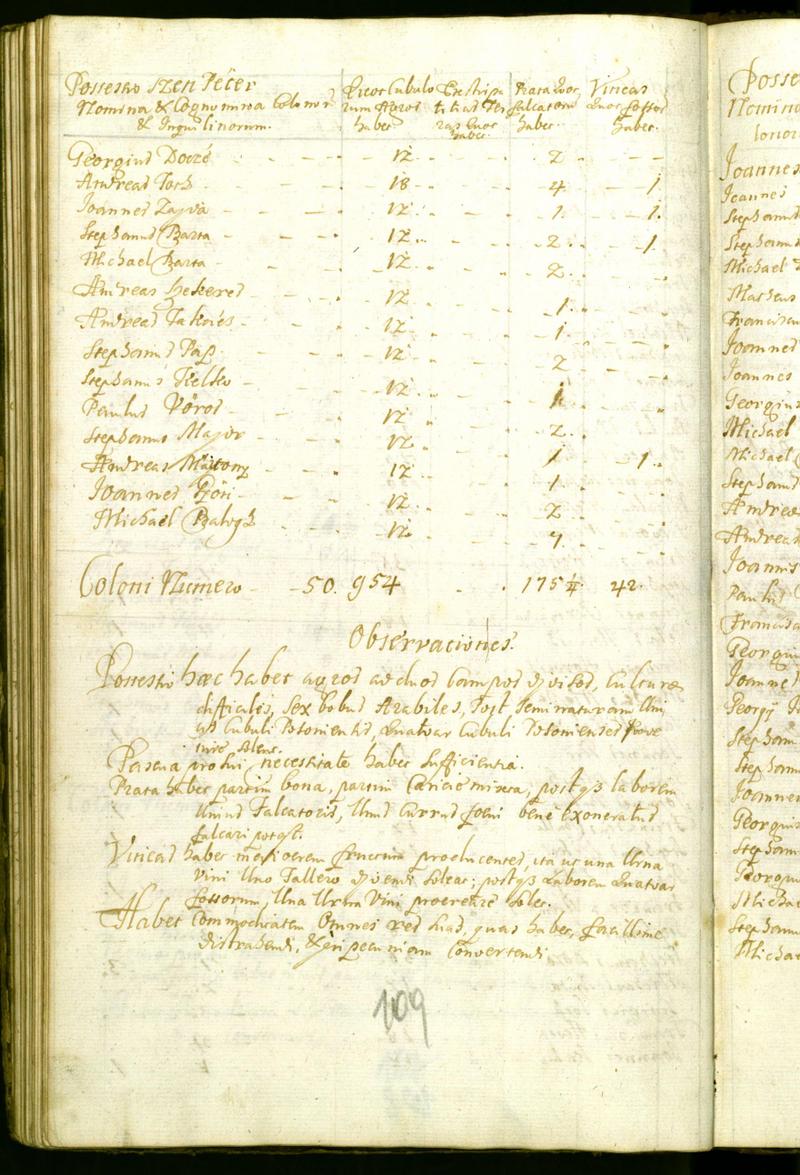 Possessio Szen Péter
Nomina & Cognomina Colonor
& Inquilinorum.
Quot Cubulo
rum Agros
habet
Exstirpa
titias Ter
ras Quot
habet.
Prata Quot
falcatorum
habet.
Vineas
Quot fossor
habet.
Georgius Doczé - - - 12 - - 2 - -
Andreas Toth - - - 18 - - 4 - 1.
Joannes Zajva - - - 12 - - 1 - 1.
Stephanus Barta - - - 12 - - 2 - 1.
Michael Barta - - - 12 - - 2 -
Andreas Hekered - - - 12 - - 1 -
Andreas Takács - - - 12 - - 1 -
Stephanus Pap - - - 12 - - 2 -
Stephanus - - - 12 - - 1 -
Paulus Vörös - - - 12 - - 2 -
Stephanus Major - - - 12 - - 1 - 1.
Andreas - - - 12 - - 1 -
Joannes - - - 12 - - 2 -
Michael Balogh - - - 12 - - 4 -
Coloni Numero - - 50. 954 - . 175 1/4. 42.
Observationes.
Possessio haec habet agros ad duos Campos divisos, Culturae
difficilis, Sex bobus Arabiles, Post Seminaturam Uni
us Cubuli Posoniensis, Quatuor Cubuli Posonienses prove
nire solent.
Pascua pro sui necessitate habet sufficientia.
Prata habet partim bona, partim Cariciem mixta, post qz laborem
Unius Falcatoris, Unus Currus foeni bene exoneratus
falcari potest.
Vineas habet mediocrem fructum producentes, ita ut una Urna
Vini Uno Tallero divendi soleat; post qz Laborem Quatuor
fossorum, Una Urna Vini provenire solet.
Habet Commoditatem Omnes res suas, quas habet, facillime
distrahendi, & in pecuniam Convertendi
109
Posse
Nomina
Joannes
Joannes
Stephanus
Stephanus
Michael
Matheus
Joannes
Joannes
Georgius
Michael
Michael
Stephanus
Andreas
Andreas
Joannes
Paulus
Georgius
Joannes
Stephan
Stephan
Joannes
Georgius
Stephan
Georgius
Michael
Stephanus
Michael